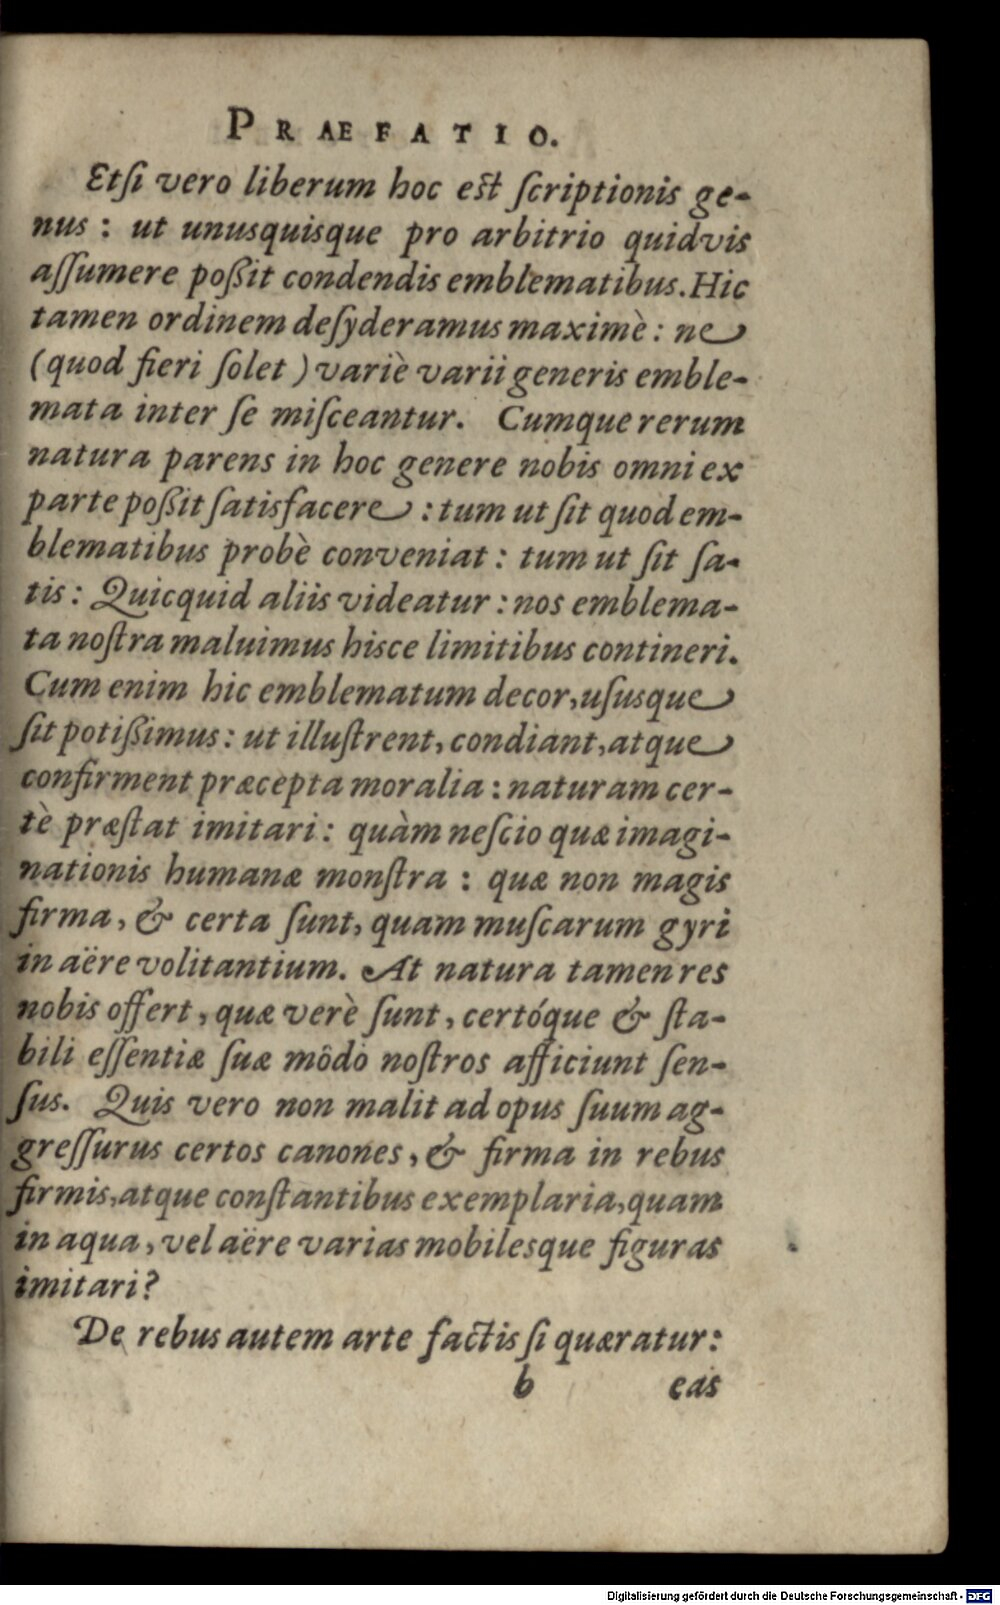 PRÆFATIO.
Etſi vero liberum hoc eſt ſcriptionis ge-
nus : ut unusquisque pro arbitrio quidvis
aſſumere poßit condendis emblematibus. Hic
tamen ordinem deſyderamus maximè : ne
(quod fieri ſolet) variè varii generis emble-
mata inter ſe miſceantur. Cumque rerum
natura parens in hoc genere nobis omni ex
parte poßit ſatisfacere : tum ut ſit quod em-
blematibus probè conveniat : tum ut ſit ſa-
tis : Quicquid aliis videatur : nos emblema-
ta noſtra maluimus hisce limitibus contineri.
Cum enim hic emblematum decor, uſusque
ſit potißimus : ut illuſtrent, condiant, atque
confirment præcepta moralia : naturam cer-
tè præſtat imitari : quàm neſcio quæ imagi-
nationis humanæ monſtra : quæ non magis
firma, & certa ſunt, quam muſcarum gyri
in aëre volitantium. At natura tamen res
nobis offert, quæ verè ſunt, certóque & ſta-
bili eſſentiæ ſuæ môdo noſtros afficiunt ſen-
ſus. Quis vero non malit ad opus ſuum ag-
greſſurus certos canones, & firma in rebus
firmis, atque conſtantibus exemplaria, quam
in aqua, vel aëre varias mobilesque figuras
imitari?
De rebus autem arte factis ſi quæratur :
b eas
Digitalisierung gefördert durch die Deutsche Forschungsgemeinschaft - DFG